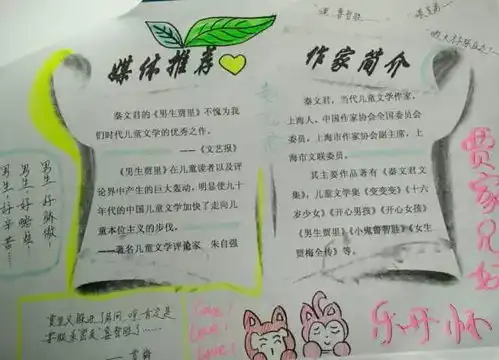 媒体推荐
秦文君的《男生贾里》不愧为我
们时代儿童文学的优秀之作。
——《文艺报》
《男生贾里》在儿童读者以及评
论界中产生的巨大轰动，明显使九十
年代的中国儿童文学加快了走向儿
童本位主义的步伐。
——著名儿童文学评论家 朱自强
作家简介
秦文君，当代儿童文学作家，
上海人，中国作家协会全国委员会
委员，上海市作家协会副主席，上
海市文联委员。
其主要作品著有《秦文君文
集》，儿童文学集《变变变》《十六
岁少女》《开心男孩》《开心女孩》
《男生贾里》《小鬼鲁智胜》《女生
贾梅全传》等。
贾家兄妹
乐开怀
男生，好骄傲！
男生，好
男生，好辛苦！